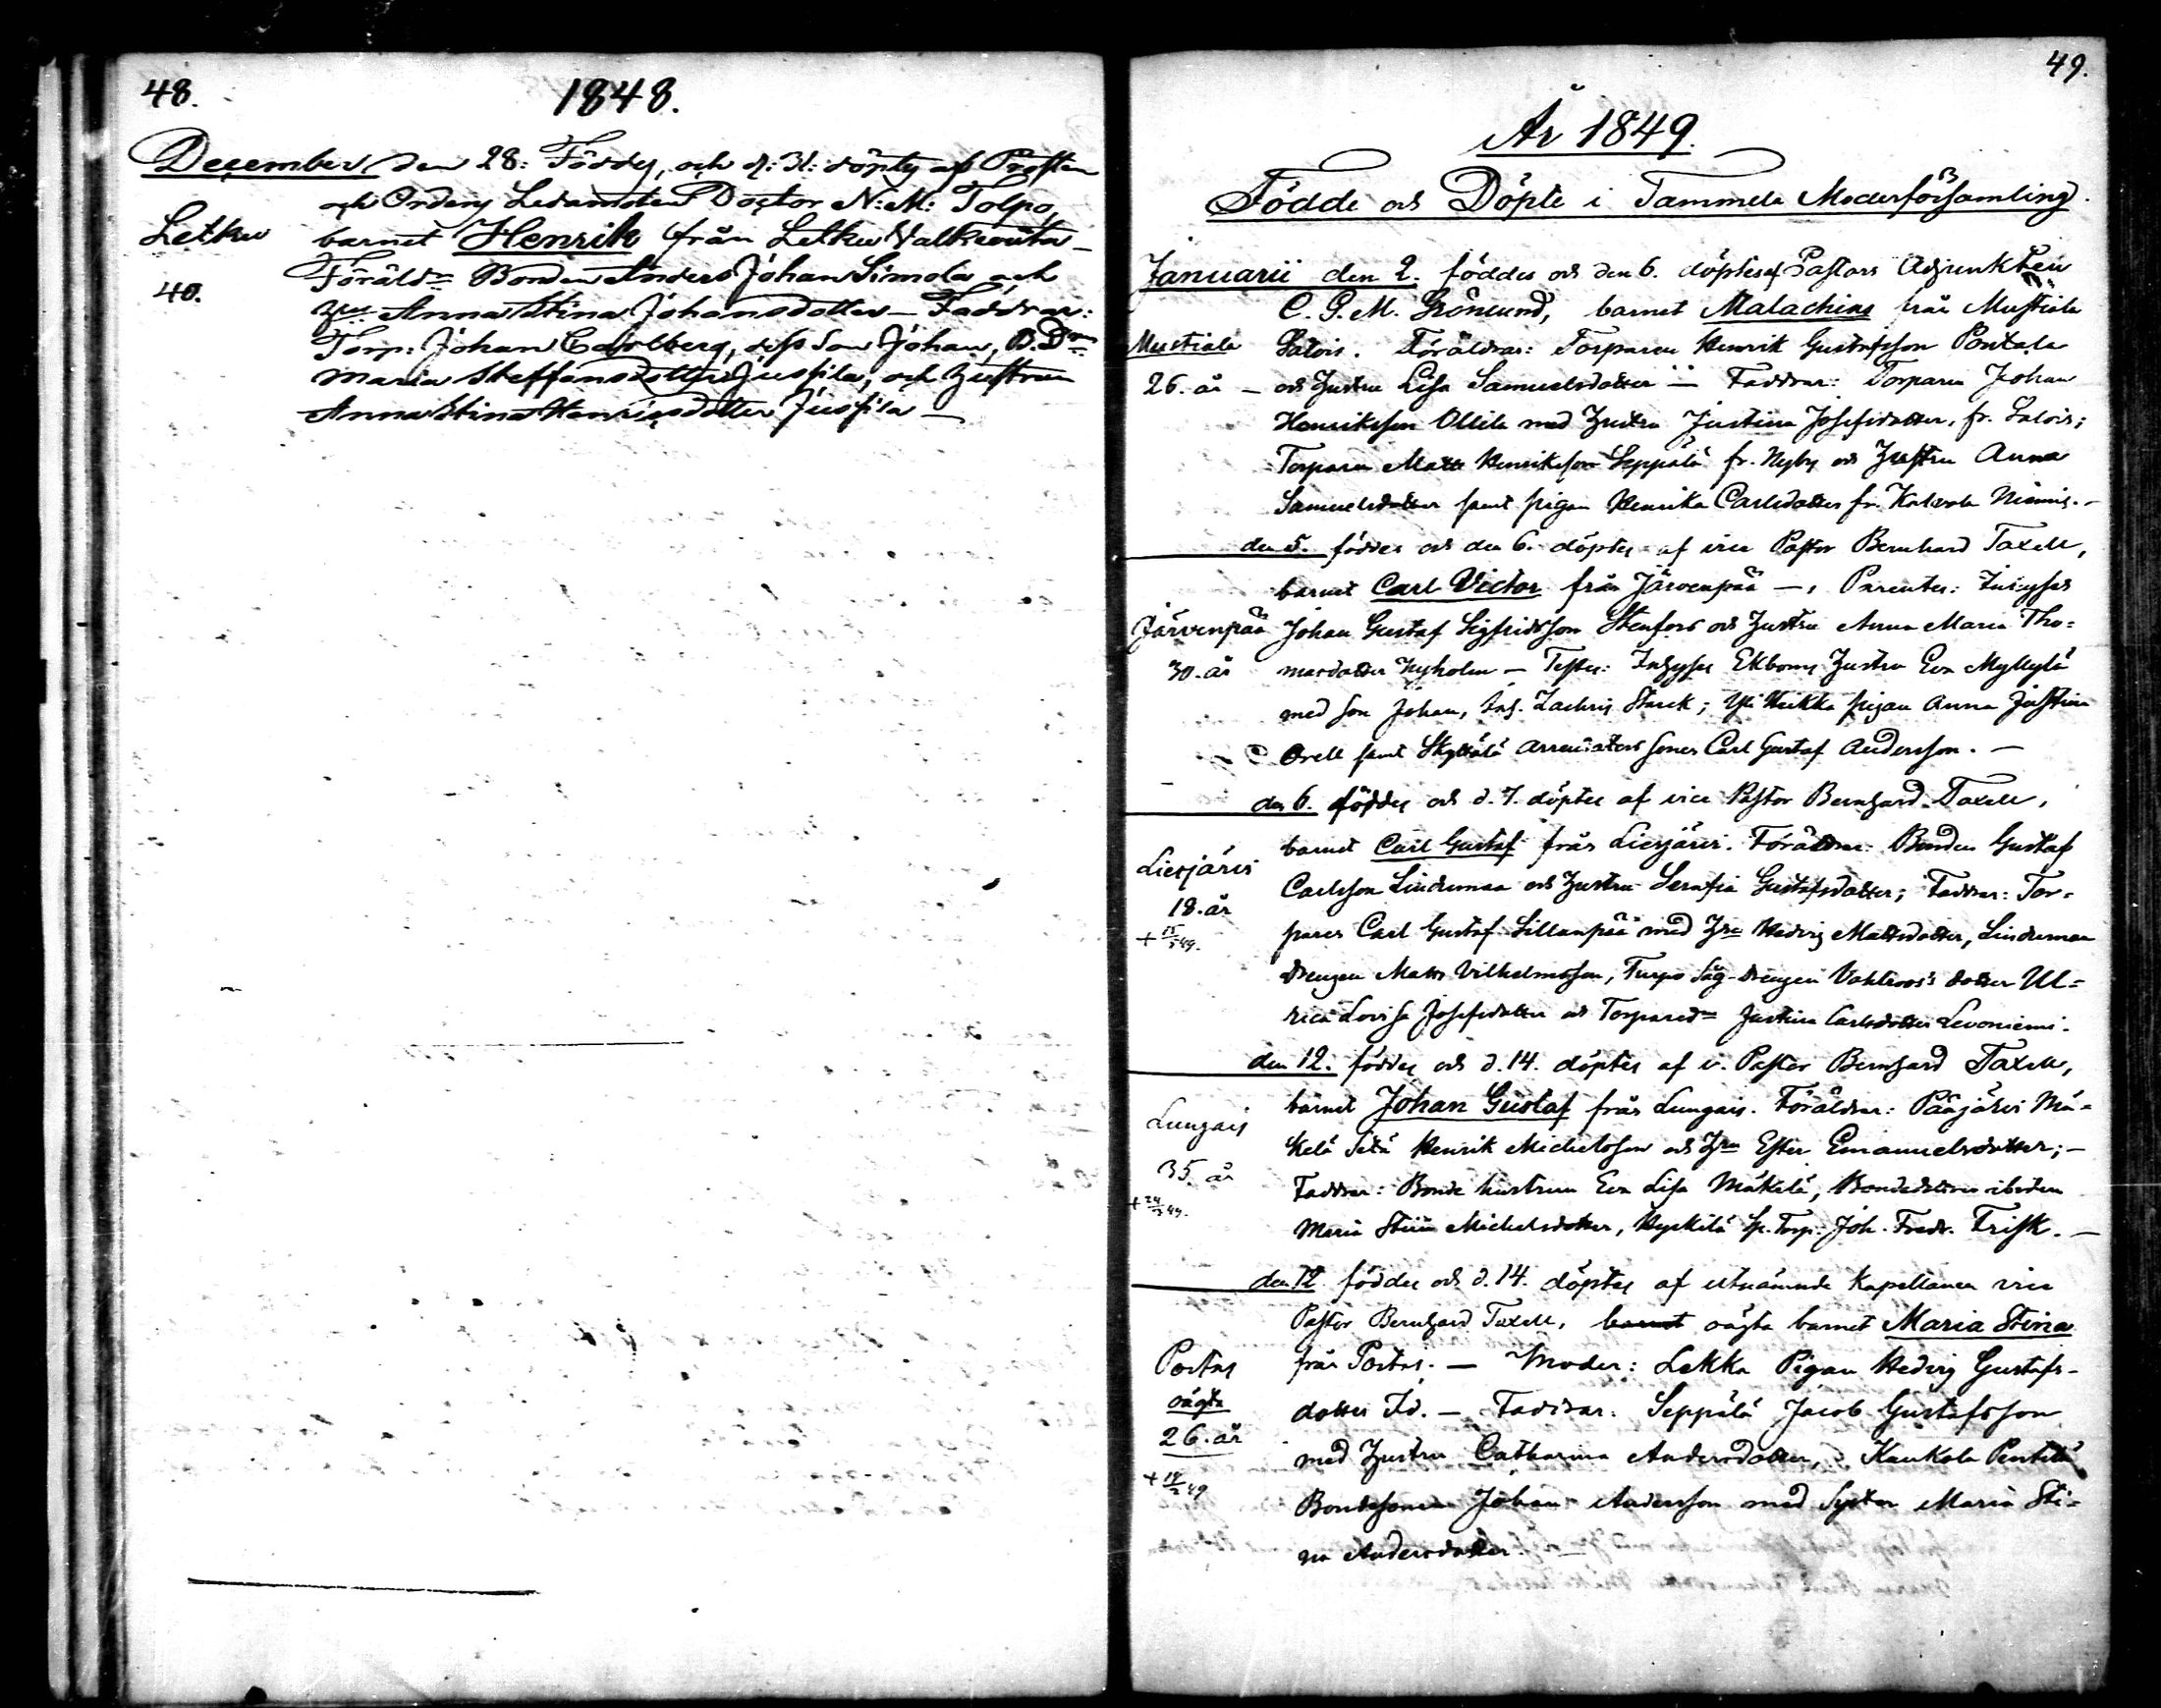 48.
1848.
December den 28: Föddes, och d: 31: döptes af Prosten
och Ordens Ledamoten Doctor N: M: Tolpo,
Letku
barnet Henrik från Letku Valkiouita
40.
Föräldrn Bonden Anders Johan Simola och
Hu Anna Stina Johansdotter — Faddrar:
Torp: Johan Carlberg, dess Son Johan, B. Drn
Maria Steffansdotter Jussila, och hustrun
Anna Stina Henricsdotter Jussila —
49.
År 1849.
Födde och Döpte i Tammela Moderförsamling.
Januarii den 2. föddes och den 6. döptes af Pastors Adjunkten
C. G. M. Grönlund, barnet Malachias från Mustiala
Mustiala
Salois. Föräldrar: Torparen Henrik Gustafsson
26. år
— och hustru Lisa Samuelsdotter — Faddrar: Torparen Johan
Henriksson Ollila med hustru Justina Josefsdotter, fr. Salois;
Torparen Matts Henriksson Seppälä fr. Nyby och hustru Anna
Samuelsdotter samt pigan Henrika Carlsdotter fr. Kalvola
den 5. föddes och den 6. döptes af vice Pastor Bernhard Taxell,
barnet Carl Victor från Järvenpää —, Parentes: Inhyses
Järvenpää
Johan Gustaf Sigfridsson Stenfors och hustru Anna Maria Tho-
30. år
masdotter Nyholm — Testes: Inhyses Ekboms hustru Eva Myllylä
med son Johan, Inh. Zachris Starck; pigan Anna Justina
Orell samt Skyttälä arrendators sonen Carl Gustaf Andersson. —
den 6. föddes och d. 7. döptes af vice Pastor Bernhard Taxell,
barnet Carl Gustaf från Liesjärvi. Föräldrar: Bonden Gustaf
Liesjärvi
Carlsson Lindumaa och hustru Serafia Gustafsdotter; Faddrar: Tor-
18. år
paren Carl Gustaf Sillanpää med Hru Hedvig Mattsdotter, Lindumaa
+ 15/5 49.
drengen Matts Vilhelmsson, Turpo Såg-drengen Vahlroos's dotter Ul-
rica Lovisa Josefsdotter och Torparedr Justina Carlsdotter Levoniemi.
den 12. föddes och d. 14. döptes af v. Pastor Bernhard Taxell,
barnet Johan Gustaf från Lungais. Föräldrar: Pääjärvi Mä-
Lungais
kelä Henrik Michelsson och Hru Ester Emanuelsdotter; —
35. år
Faddrar: Bonde hustrun Eva Lisa Mäkelä, Bondedottren ibidem
+ 24/3 49.
Maria Stina Michelsdotter, Hyrkilä Sp. Torp. Joh. Fredr. Frisk. —
den 12. föddes och d. 14. döptes af utnämnde Kapellanen vice
Pastor Bernhard Taxell, barnet oägta barnet Maria Stina
Portas
från Portas. — Moder: Lekka Pigan Hedvig Gustafs-
oägta
dotter Id. — Faddrar: Seppälä Jacob Gustafsson
26. år
med hustru Catharina Andersdotter, Kaukola Penttilä
+ 14/2 49
Bondesonen Johan Andersson med Syster Maria Sti-
na Andersdotter. —